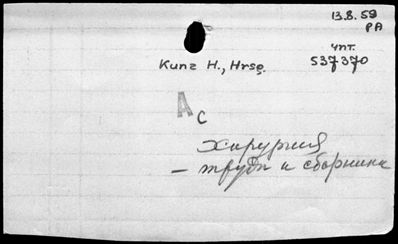 13.8.59
РА
чпт.
537370
Kunz H., Hrsg.
A c
Хирургия
– труды и сборники